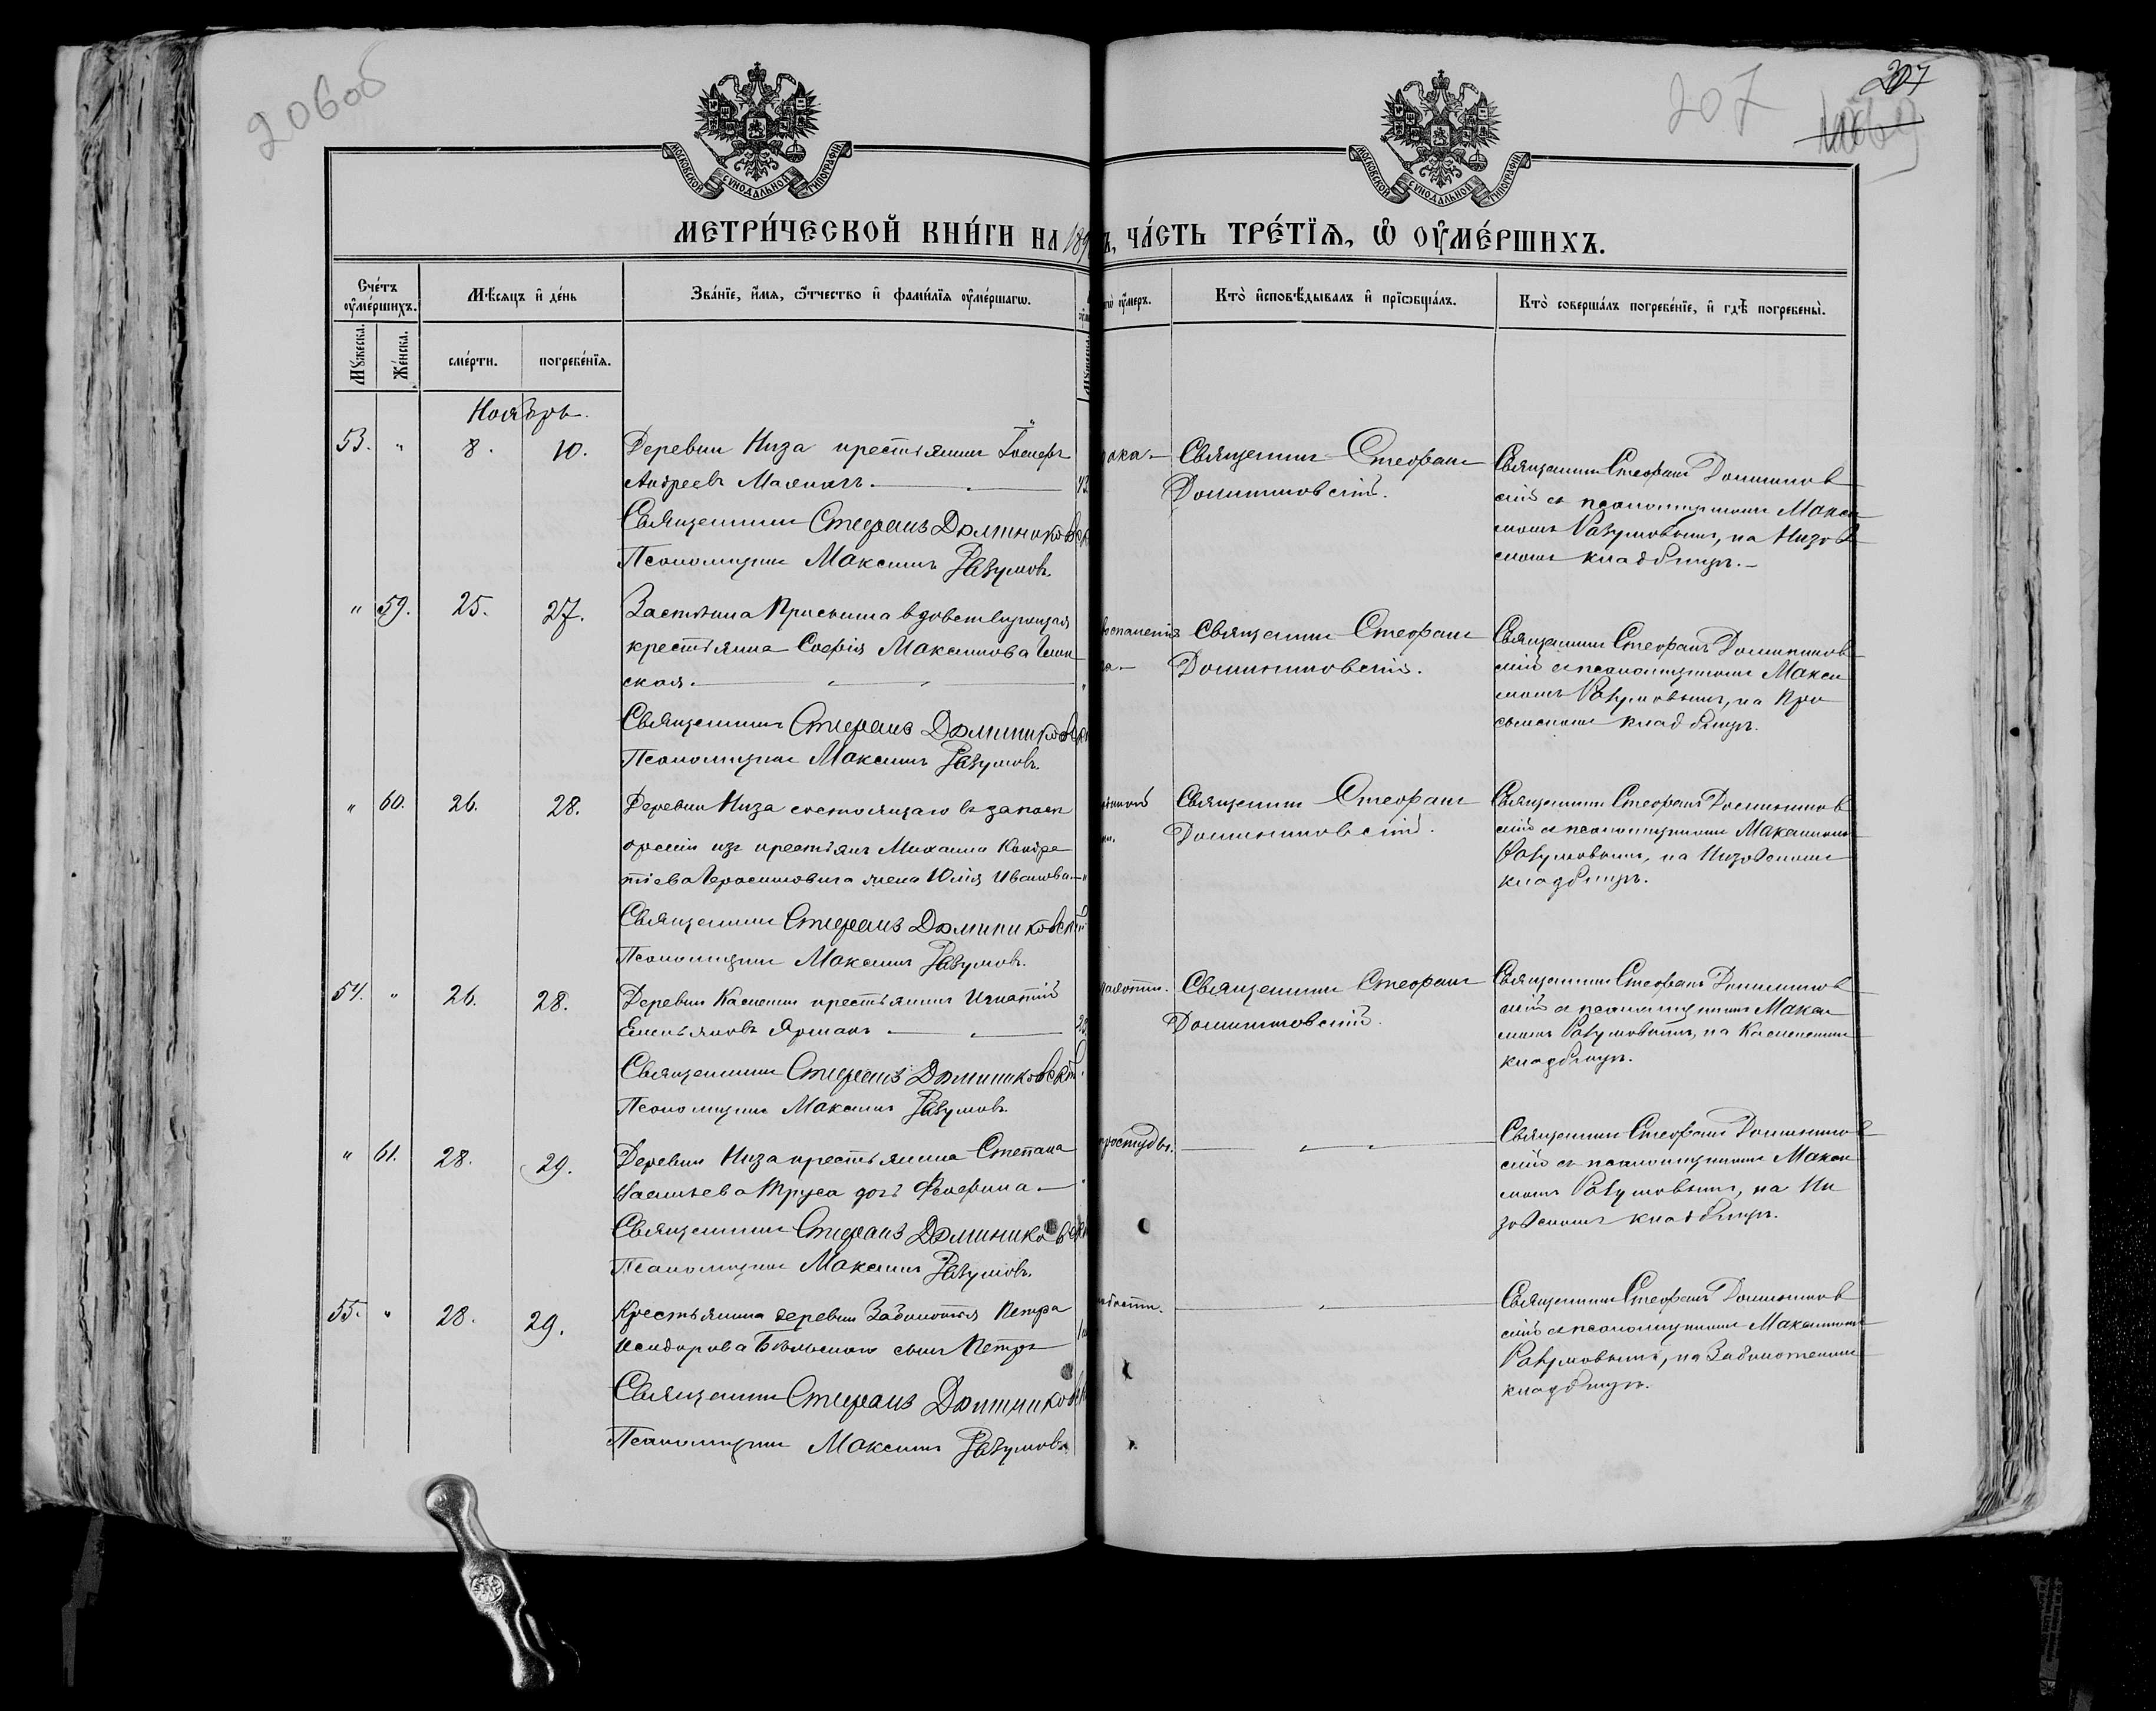 206об
207
207
МОСКОВСКОЙ СѴНОДАЛЬНОЙ ТИПОГРАФІИ
МОСКОВСКОЙ СѴНОДАЛЬНОЙ ТИПОГРАФІИ
МЕТРИ́ЧЕСКОЙ КНИ́ГИ НА 189
ЧА́СТЬ ТРЕ́ТІѦ, Ѡ҆ ОУ҆МЕ́РШИХЪ.
Сче́тъ оу҆ме́ршихъ.
Мѣ́сяцъ и҆ де́нь
Зва́нїе, и҆́мѧ, ѻ҆́тчество и҆ фами́лїѧ оу҆ме́ршагѡ.
оу҆́меръ.
Кто̀ и҆сповѣ́дывалъ и҆ прїѡбща́лъ.
Кто̀ соверша́лъ погребе́нїе, и҆ гдѣ̀ погребены̀.
Му́жеска.
Же́нска.
сме́рти.
погребе́нїѧ.
Ноябрь.
53. " 8. 10. Деревни Низа крестьянинъ Іосифъ
Андреевъ
Священникъ Стефанъ Доминиковск
Псаломщикъ Максимъ Разумовъ.
Священникъ Стефанъ
Доминиковскій.
Священникъ Стефанъ Домиников
скій съ псаломщикомъ Макси
момъ Разумовымъ, на Низов
скомъ кладбищѣ.
" 59. 25. 27. Застѣнка вдовствующая
крестьянка Софія Максимова
ская.
Священникъ Стефанъ Доминиковск
Псаломщикъ Максимъ Разумовъ.
воспаленія
Священникъ Стефанъ
Доминиковскій.
Священникъ Стефанъ Домиников
скій съ псаломщикомъ Макси
момъ Разумовымъ, на
кладбищѣ.
" 60. 26. 28. Деревни Низа состоящаго въ запасѣ
арміи изъ крестьянъ Михаила Кондра
тіева Герасимовича жена Юлія Иванова
Священникъ Стефанъ Доминиковскій
Псаломщикъ Максимъ Разумовъ.
Священникъ Стефанъ
Доминиковскій.
Священникъ Стефанъ Домиников
скій съ псаломщикомъ Максимомъ
Разумовымъ, на Низовскомъ
кладбищѣ.
54. " 26. 28. Деревни крестьянинъ Игнатій
Емельяновъ Ярмакъ
Священникъ Стефанъ Доминиковскій
Псаломщикъ Максимъ Разумовъ.
Священникъ Стефанъ
Доминиковскій.
Священникъ Стефанъ Домиников
скій съ псаломщикомъ Макси
момъ Разумовымъ, на
кладбищѣ.
" 61. 28. 29. Деревни Низа крестьянина Степана
Васильева Труса дочь
Священникъ Стефанъ Доминиковск
Псаломщикъ Максимъ Разумовъ.
простуды.
Священникъ Стефанъ Домиников
скій съ псаломщикомъ Макси
момъ Разумовымъ, на Ни
зовскомъ кладбищѣ.
55. " 28. 29. Крестьянина деревни Заболотья Петра
Исидорова Бѣльскаго сынъ Петръ
Священникъ Стефанъ Доминиковск
Псаломщикъ Максимъ Разумовъ.
Священникъ Стефанъ Домиников
скій съ псаломщикомъ Максимомъ
Разумовымъ, на Заболотскомъ
кладбищѣ.